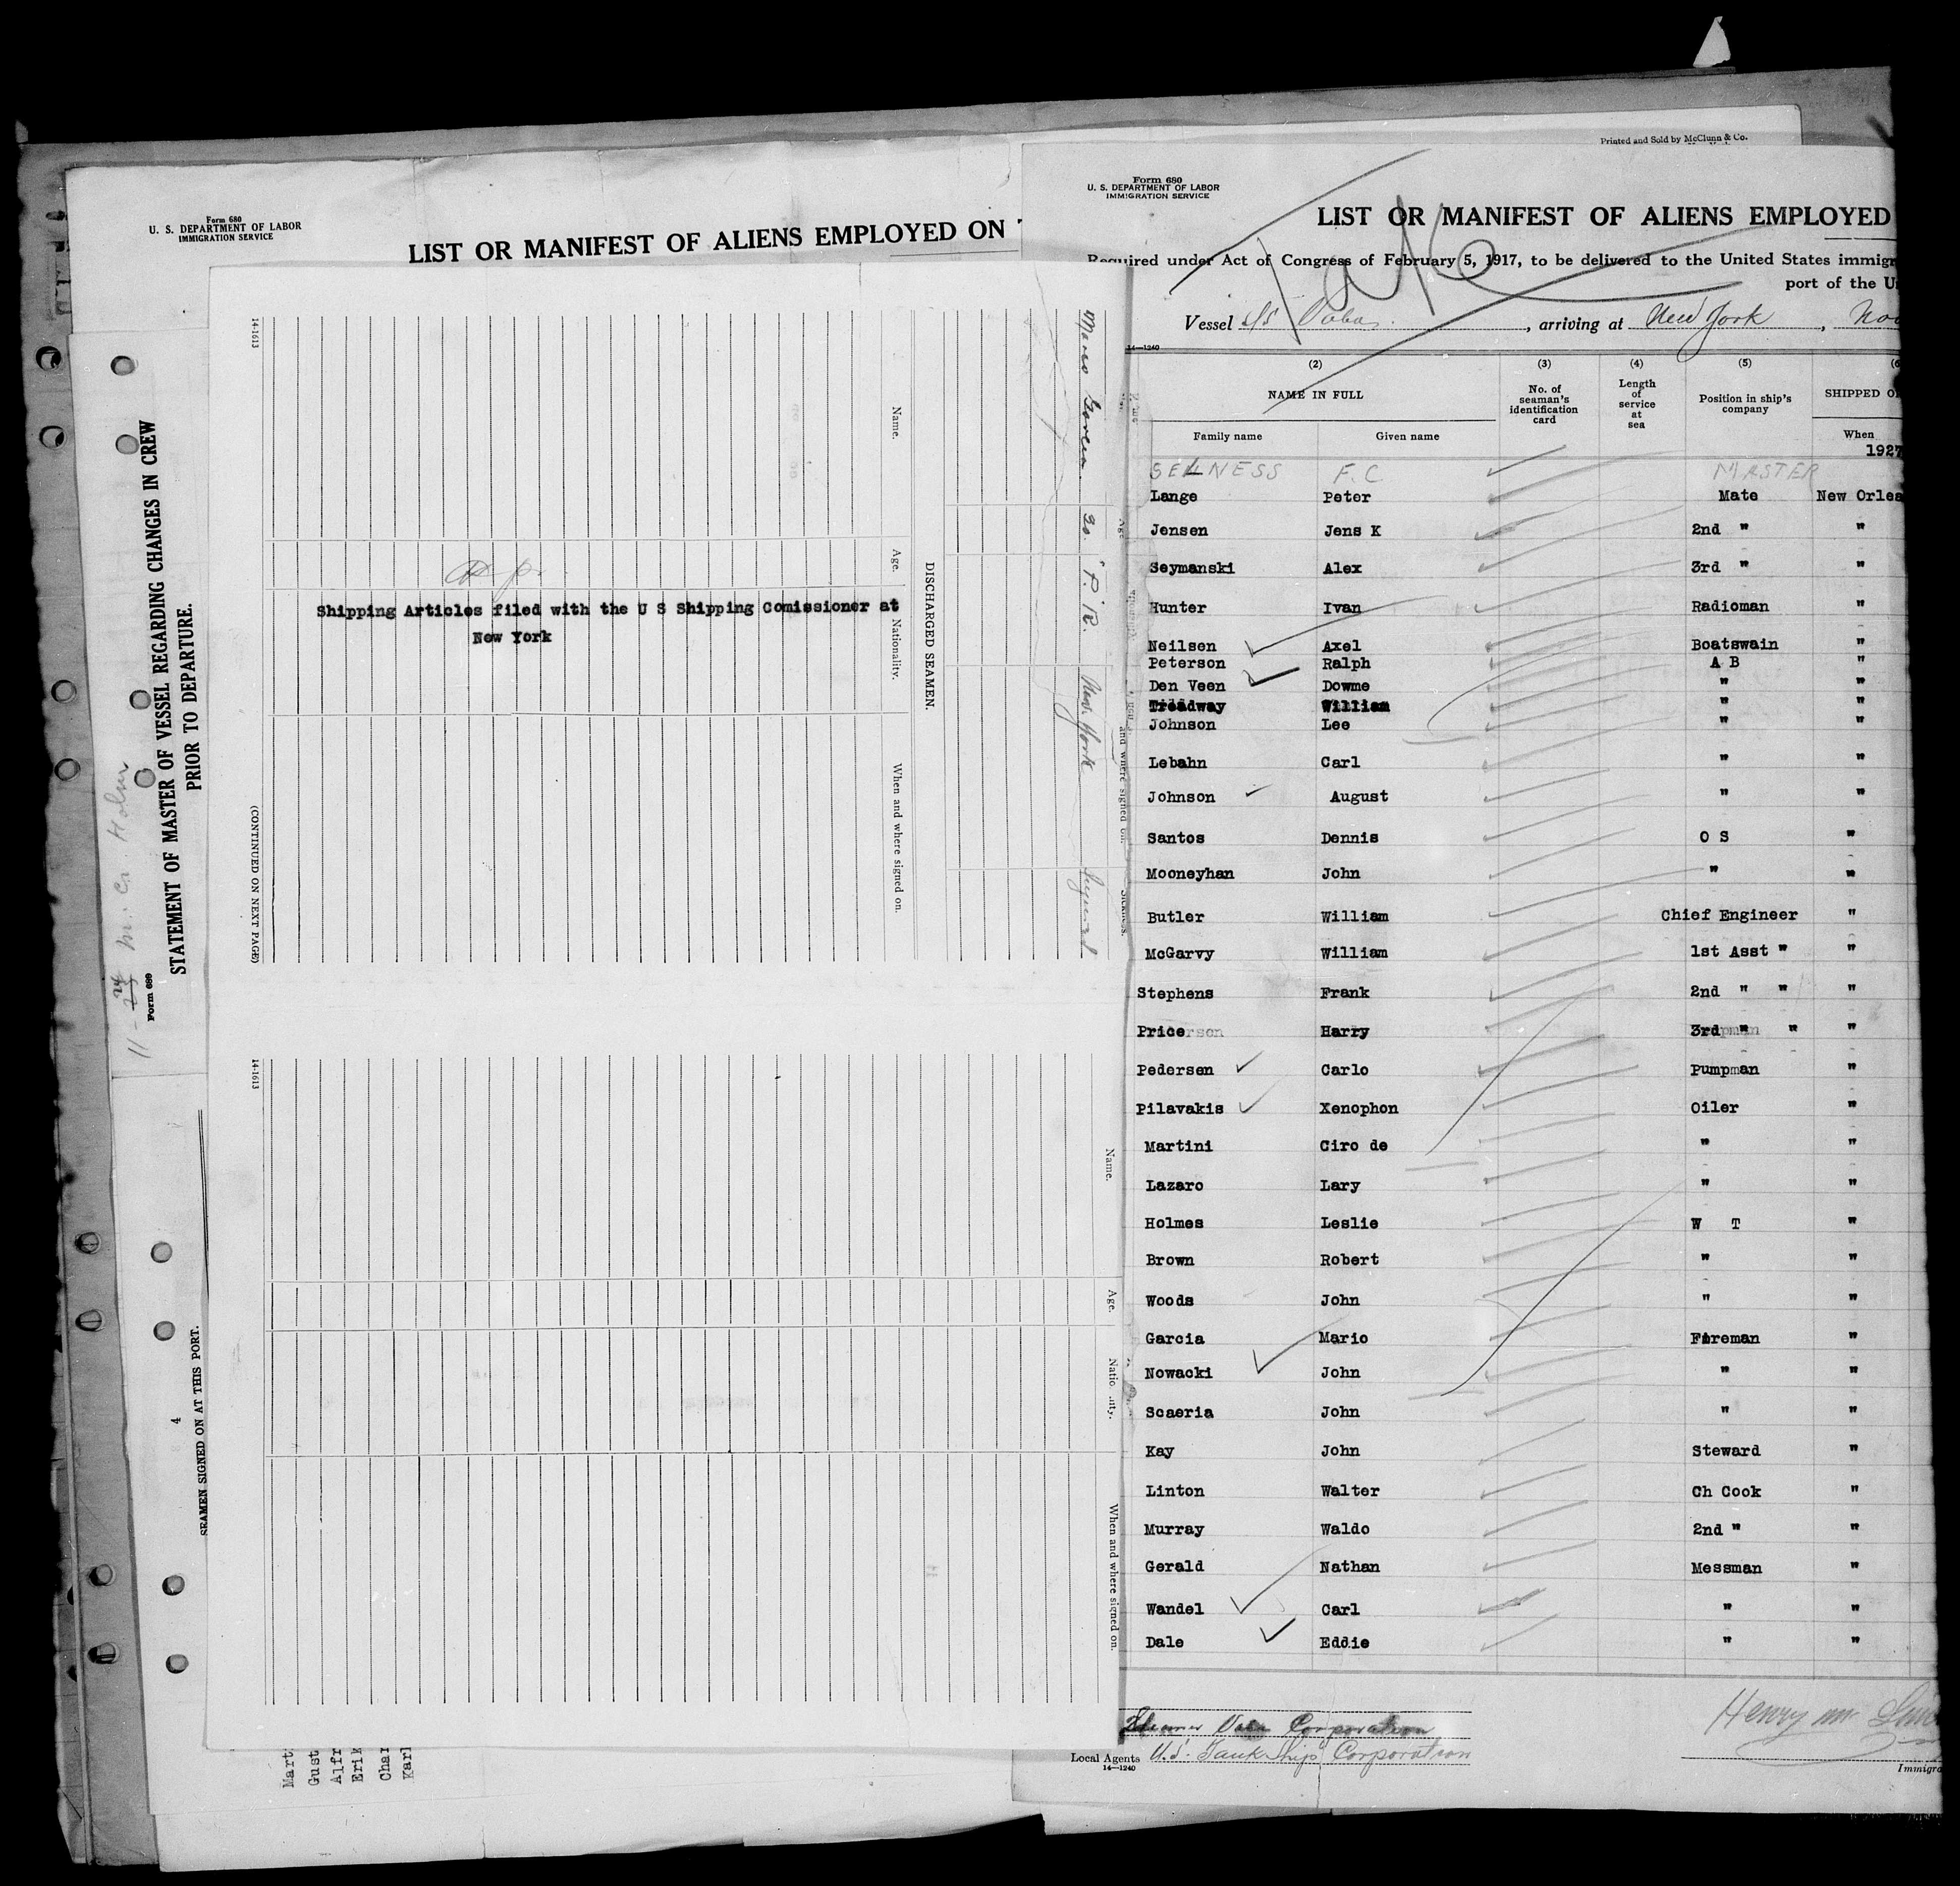 Printed and Sold by McClunn & Co.
Form 680
U. S. DEPARTMENT OF LABOR
IMMIGRATION SERVICE
LIST OR MANIFEST OF ALIENS EMPLOYED ON
11 - 24
Form 689
STATEMENT OF MASTER OF VESSEL REGARDING CHANGES IN CREW
PRIOR TO DEPARTURE.
4
SEAMEN SIGNED ON AT THIS PORT.
Mart
Gust
Alfr
Erik
Char
Karl
14-1613
(CONTINUED ON NEXT PAGE)
Name.
Age.
Nationality.
When and where signed on.
Shipping Articles filed with the U S Shipping Comissioner at
New York
DISCHARGED SEAMEN.
Mario Garcia. 30. P. R. New York Injured
14-1613
Name.
Age.
When and where signed on.
Form 680
U. S. DEPARTMENT OF LABOR
IMMIGRATION SERVICE
LIST OR MANIFEST OF ALIENS EMPLOYED
Required under Act of Congress of February 5, 1917, to be delivered to the United States immigr
port of the U
Vessel S/S , arriving at New York , Nov
14-1240
(2) (3) (4) (5) (6
NAME IN FULL
Family name Given name
No. of seaman's identification card
Length of service at sea
Position in ship's company
SHIPPED O
When
1927
SELNESS F. C. MASTER
Lange Peter Mate New Orlea
Jensen Jens K 2nd " "
Seymanski Alex 3rd " "
Hunter Ivan Radioman "
Neilsen Axel Boatswain "
Peterson Ralph A B "
Den Veen Dowme " "
Treadway William " "
Johnson Lee " "
Lebahn Carl " "
Johnson August " "
Santos Dennis O S "
Mooneyhan John " "
Butler William Chief Engineer "
McGarvy William 1st Asst " "
Stephens Frank 2nd " " "
Price Harry 3rd " " "
Pedersen Carlo Pumpman "
Pilavakis Xenophon Oiler "
Martini Ciro de " "
Lazaro Lary " "
Holmes Leslie W T "
Brown Robert " "
Woods John " "
Garcia Mario Fireman "
Nowacki John " "
Scaeria John " "
Kay John Steward "
Linton Walter Ch Cook "
Murray Waldo 2nd " "
Gerald Nathan Messman "
Wandel Carl " "
Dale Eddie " "
Corporation
Local Agents U.S. Tank Ship Corporation
14-1240
Henry
Immigra